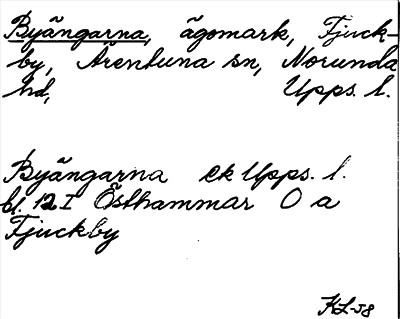 Byängarna, ägomark, Fjuck-
by, Ärentuna sn, Norunda
hd, Upps. l.
Byängarna ek Upps. l.
bl. 12 I Östhammar O a
Fjuckby
KL-58